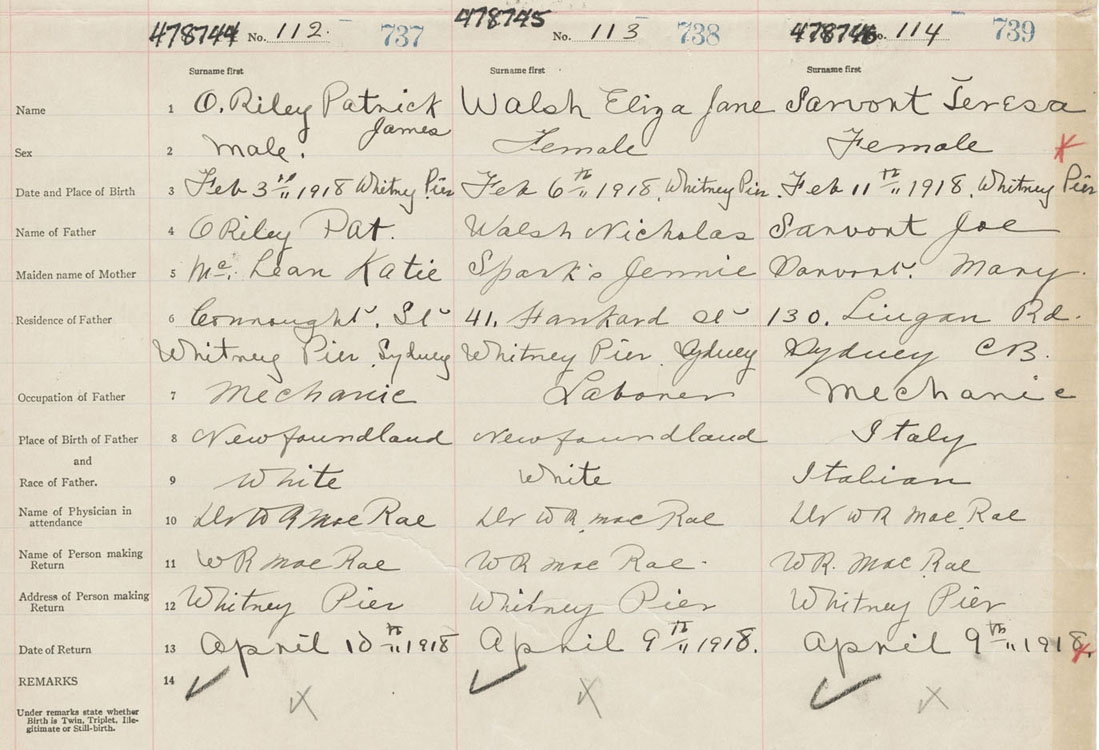 478744 No. 112. 737 478745 No. 113 738 478746 No. 114 739
Surname first Surname first Surname first
Name 1 O. Riley Patrick James Walsh Eliza Jane Sarvont Teresa
Sex 2 Male. Female Female
Date and Place of Birth 3 Feb 3rd 1918 Whitney Pier Feb 6th 1918, Whitney Pier. Feb 11th 1918, Whitney Pier
Name of Father 4 O Riley Pat. Walsh Nicholas Sarvont Joe
Maiden name of Mother 5 Mc. Lean Katie Spark's Jennie Mary.
Residence of Father 6 Connought. St 41. Hankard St 130. Lingan Rd.
Whitney Pier Sydney Whitney Pier Sydney Sydney CB.
Occupation of Father 7 Mechanic Laborer Mechanic
Place of Birth of Father 8 Newfoundland Newfoundland Italy
and
Race of Father. 9 White White Italian
Name of Physician in
attendance 10 Dr W R Mac Rae Dr W R. Mac Rae Dr W R Mac. Rae
Name of Person making
Return 11 W R Mac Rae W R Mac Rae. W R. Mac Rae
Address of Person making
Return 12 Whitney Pier Whitney Pier Whitney Pier
Date of Return 13 April 10th 1918 April 9th 1918. April 9th 1918.
REMARKS 14
Under remarks state whether
Birth is Twin, Triplet, Ille-
gitimate or Still-birth.